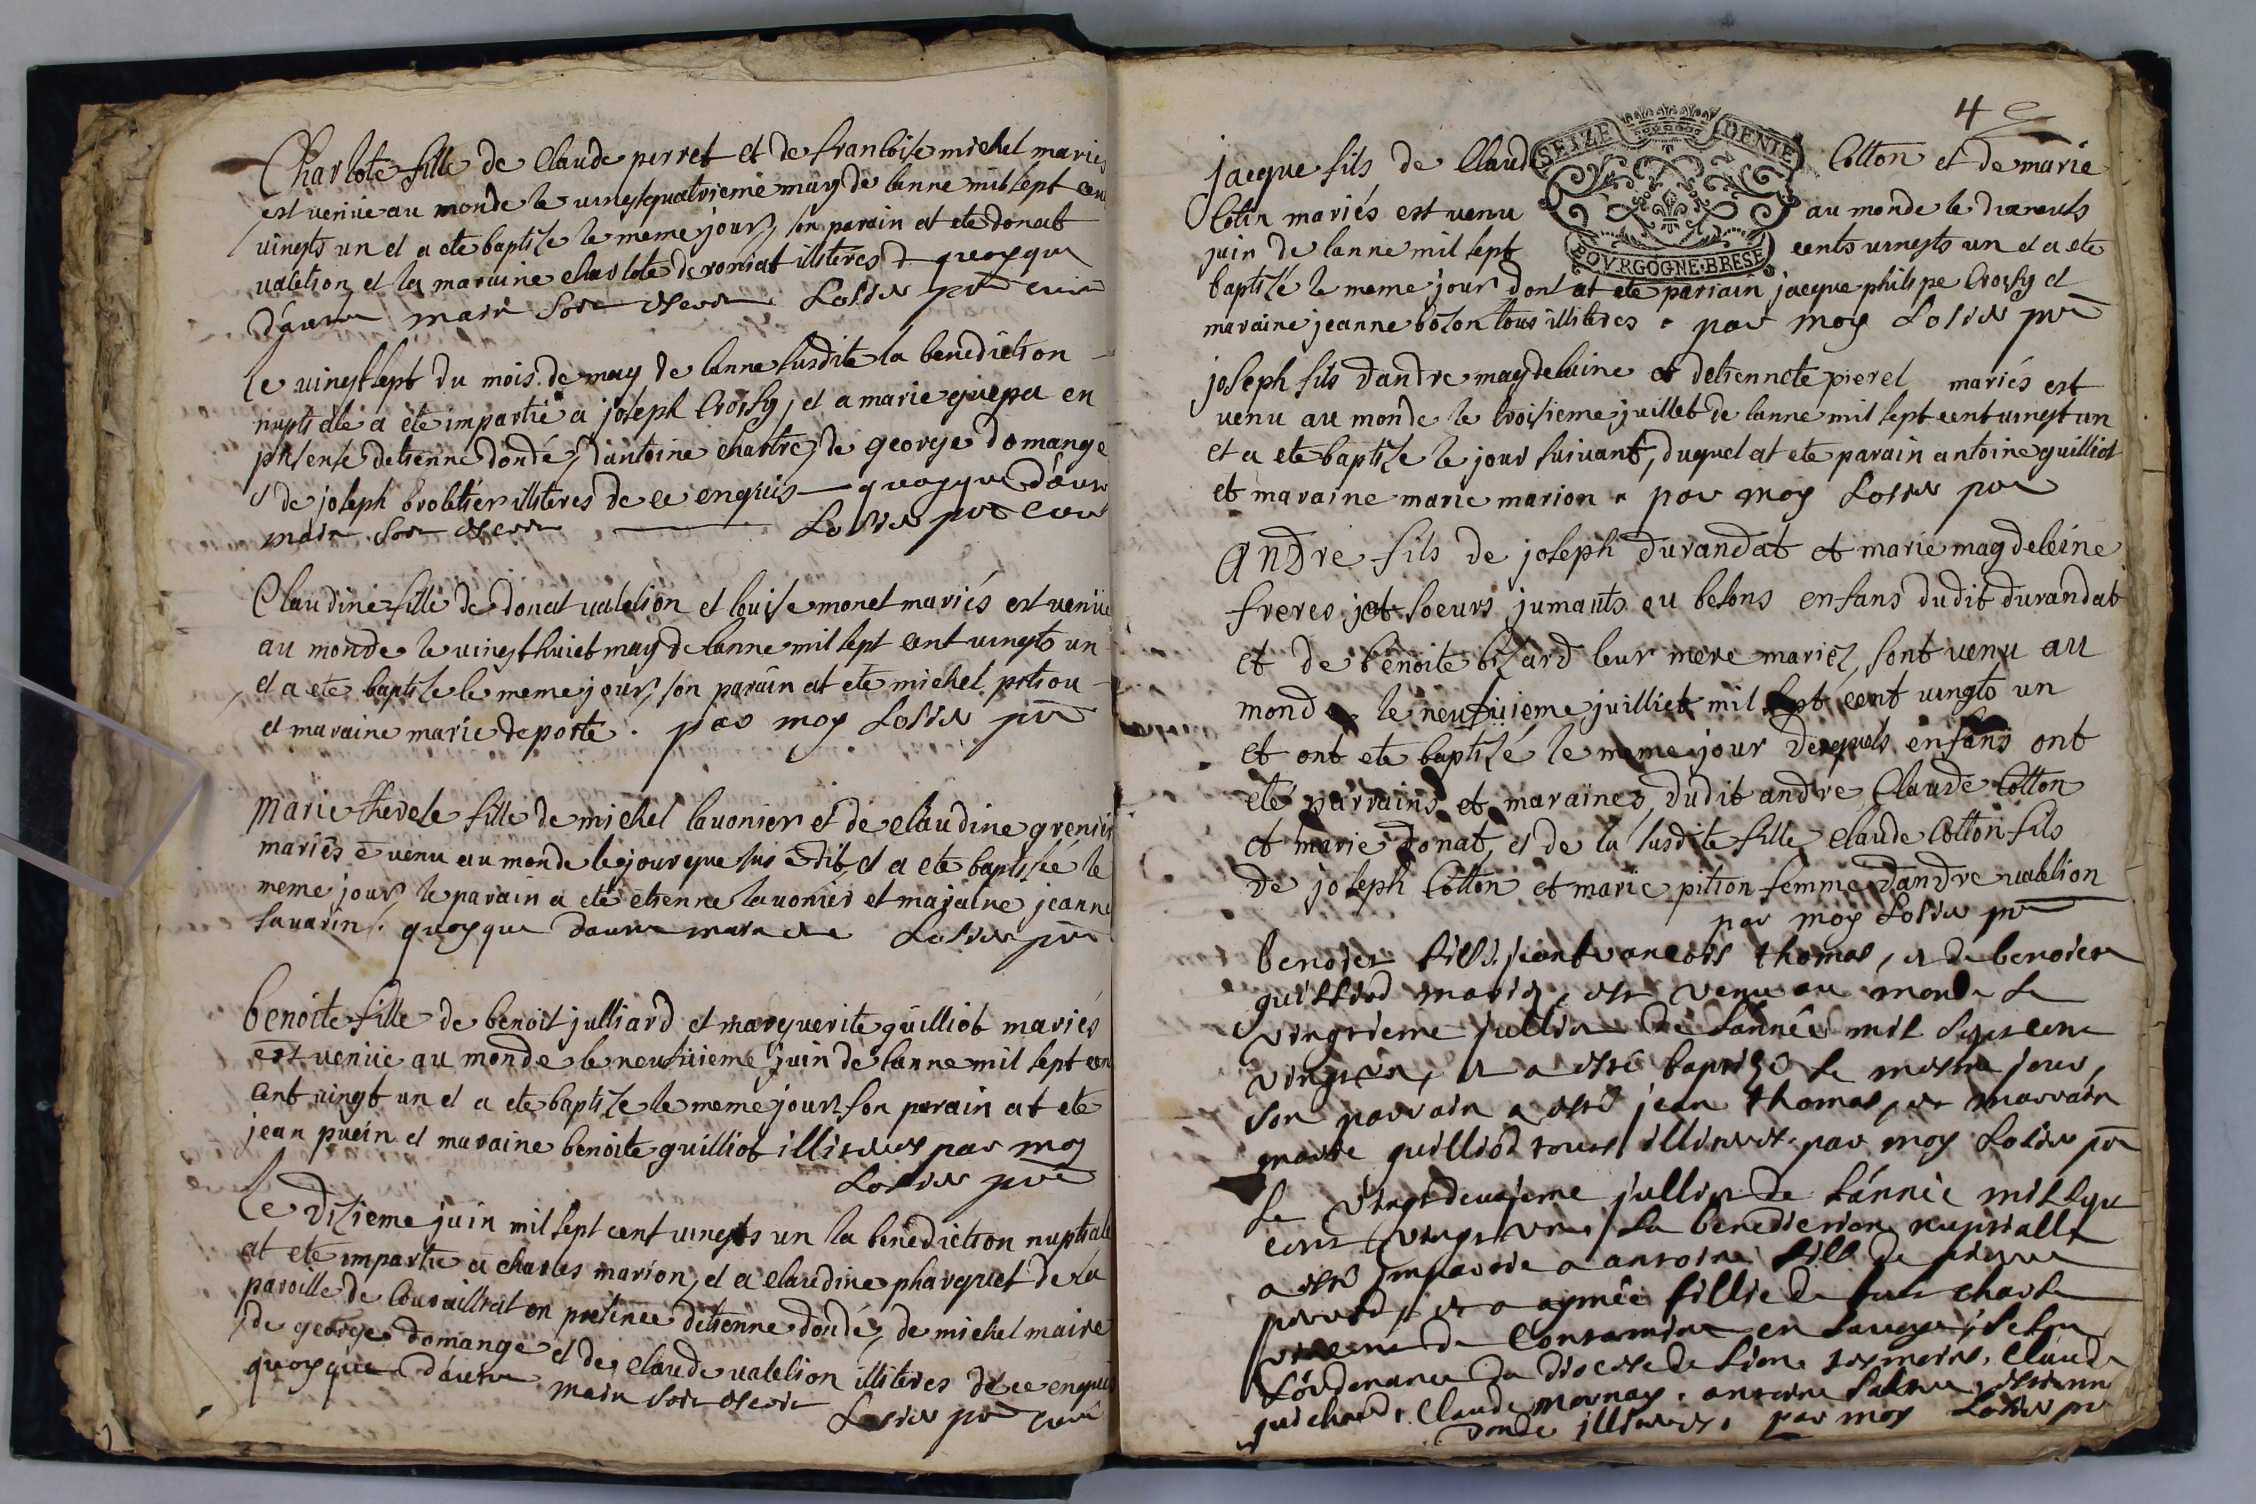 Charlote fille de Claude perret et de francoise michel mariés
est venüe au monde le vingtquatrieme may de lanne mil sept cent
vingts un et a ete baptize le meme jour, son parain at ete donat
valetion et la maraine charlote deroniat illiteres quoyque
d'autre main soit escrit Losier ptre curé
le vingt sept du mois de may de lanne susdite la benediction
nuptialle a ete impartie a joseph Croissy, et a marie guepa en
presense detienne dondé, dantoine chastre, de george domange
et de joseph broletier illiteres de ce enquis quoyque d'autre
main soit escrit Losier ptre curé
Claudine fille de donat valetion et louise monet mariés est venüe
au monde le vingt huict may de lanne mil sept cent vingts un
et a ete baptize le meme jour, son parain at ete michel pition
et maraine marie deporte. par moy Losier ptre
marie therese fille de michel lavonier et de claudine grenier
mariés e venu au monde le jour que sus e dit, et a ete baptisée le
meme jour, le parain a ete etienne lavonier et maraine jeanne
favarin. quoyque dautre main Losier ptre
benoite fille de benoit julliard et marguerite guilliot mariés
est venüe au monde le neufuieme juin de lanne mil sept cen
cent vingt un et a ete baptize le meme jour son parain at ete
jean puein et maraine benoite guilliot illiteres par moy
Losier ptre
Le dizieme juin mil sept cent vingts un la benediction nuptiale
at ete impartie a charles marion, et a claudine pharquet de la
paroisse de en presence detienne dondé, de michel maire
de george domange et de claude valetion illiteres de ce enquis
quoyque d'autre main soit escrit
Losier ptre curé
4
SEIZE DENIE
BOVRGOGNE·BRESE
jacque fils de Claude Cotton et de marie
Cotin mariés est venu au monde le dixneufs
juin de lanne mil sept cents vingts un et a ete
baptizé le meme jour dont at ete parrain jacque philipe Croissy et
maraine jeanne bolon tous illiteres. par moy Losier ptre
joseph fils dandre magdelaine et detiennete pierel mariés est
venu au monde le troisieme juillet de lanne mil sept cent vingt un
et a ete baptize le jour suivant, duquel at ete parain antoine guilliot
et maraine marie marion. par moy Losier ptre
andre fils de joseph durandat et marie magdeleine
freres et soeurs jumants ou besons enfans dudit durandat
et de benoite bizard leur mere mariéz, sont venu au
monde le neufuieme juilliet mil sept cent vingts un
et ont ete baptizé le meme jour desquels enfans ont
eté parrains et maraines, dudit andre Claude Cotton
et marie donat, et de la susdite fille claude Cotton fils
de joseph Cotton et marie pition femme dandre valetion
par moy Losier ptre
benoist fills jeanfrancois thomas, et de benoiste
guilliod mariez, est venu au monde le
vingtieme jullier de l'année mil sept cent
vingt un, et a esté baptizé le mesme jour,
son parrain a esté jean thomas, et marrain
marie guilliod tous illiteres. par moy Losier ptre
le vingtdeuxieme jullier de l'année mil sept
cent vingt un la benediction nuptialle
a esté impartie a antoine fills de pierre
perrod, et a aymée fillie de charle
vincent de en selon
l'ordonance du diocese de Lion tesmoins, claude
guichard, Claude mornay, antoine estienne
donde illiteres, par moy Losier ptre